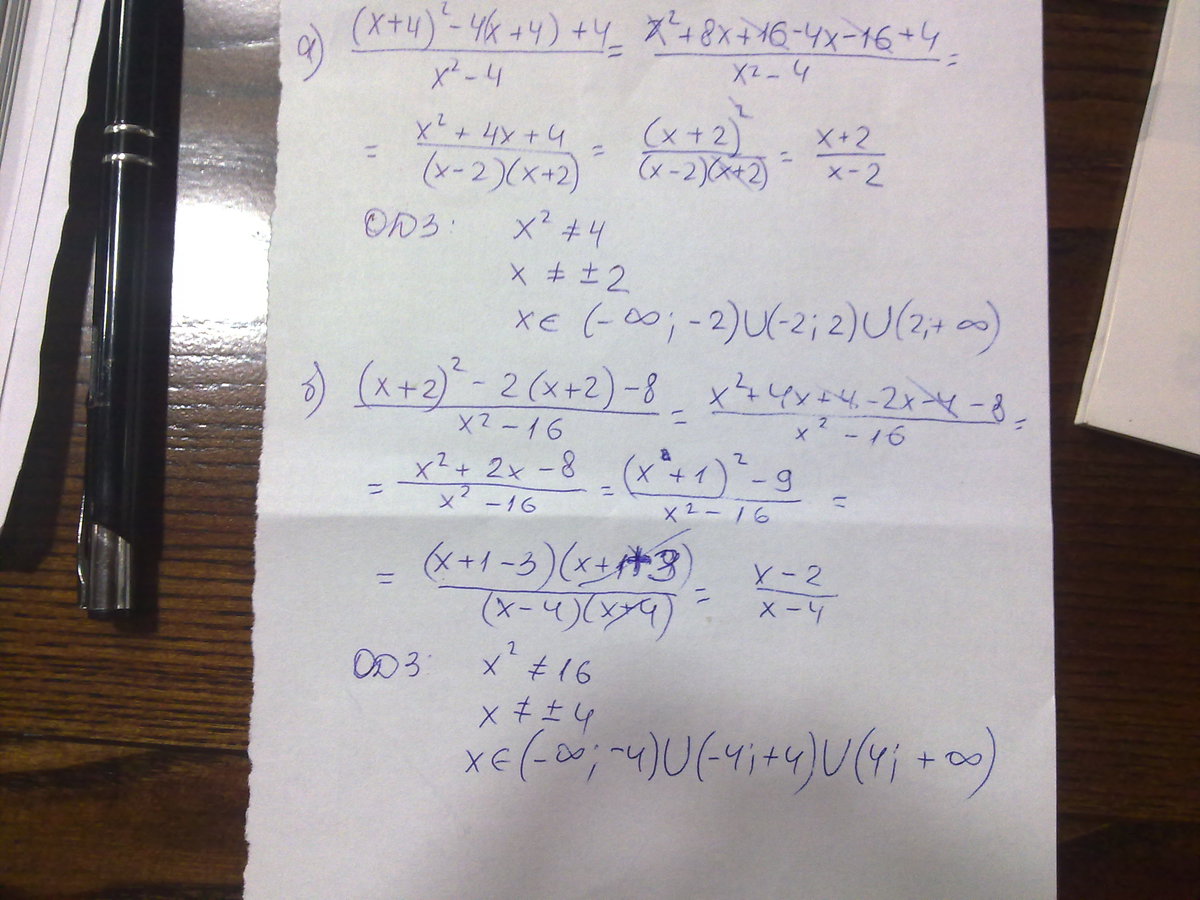 а) ((x+4)² - 4(x+4) + 4)/(x² - 4) = (x² + 8x + 16 - 4x - 16 + 4)/(x² - 4) =
= (x² + 4x + 4)/((x-2)(x+2)) = (x+2)²/((x-2)(x+2)) = (x+2)/(x-2)
ОДЗ: x² ≠ 4
x ≠ ±2
x ∈ (-∞; -2)∪(-2; 2)∪(2; +∞)
б) ((x+2)² - 2(x+2) - 8)/(x² - 16) = (x² + 4x + 4 - 2x - 4 - 8)/(x² - 16) =
= (x² + 2x - 8)/(x² - 16) = ((x+1)² - 9)/(x² - 16) =
= ((x+1-3)(x+1+3))/((x-4)(x+4)) = (x-2)/(x-4)
ОДЗ: x² ≠ 16
x ≠ ±4
x ∈ (-∞; -4)∪(-4; +4)∪(4; +∞)